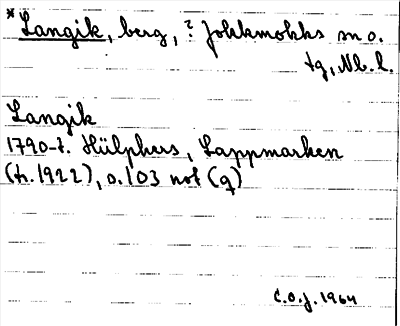 *Langik, berg, ? Jokkmokks sn o.
tg, Nb. l.
Langik
1790-t. Hülphers, Lappmarken
(tr. 1922), s. 103 not (g)
C.O.J. 1964